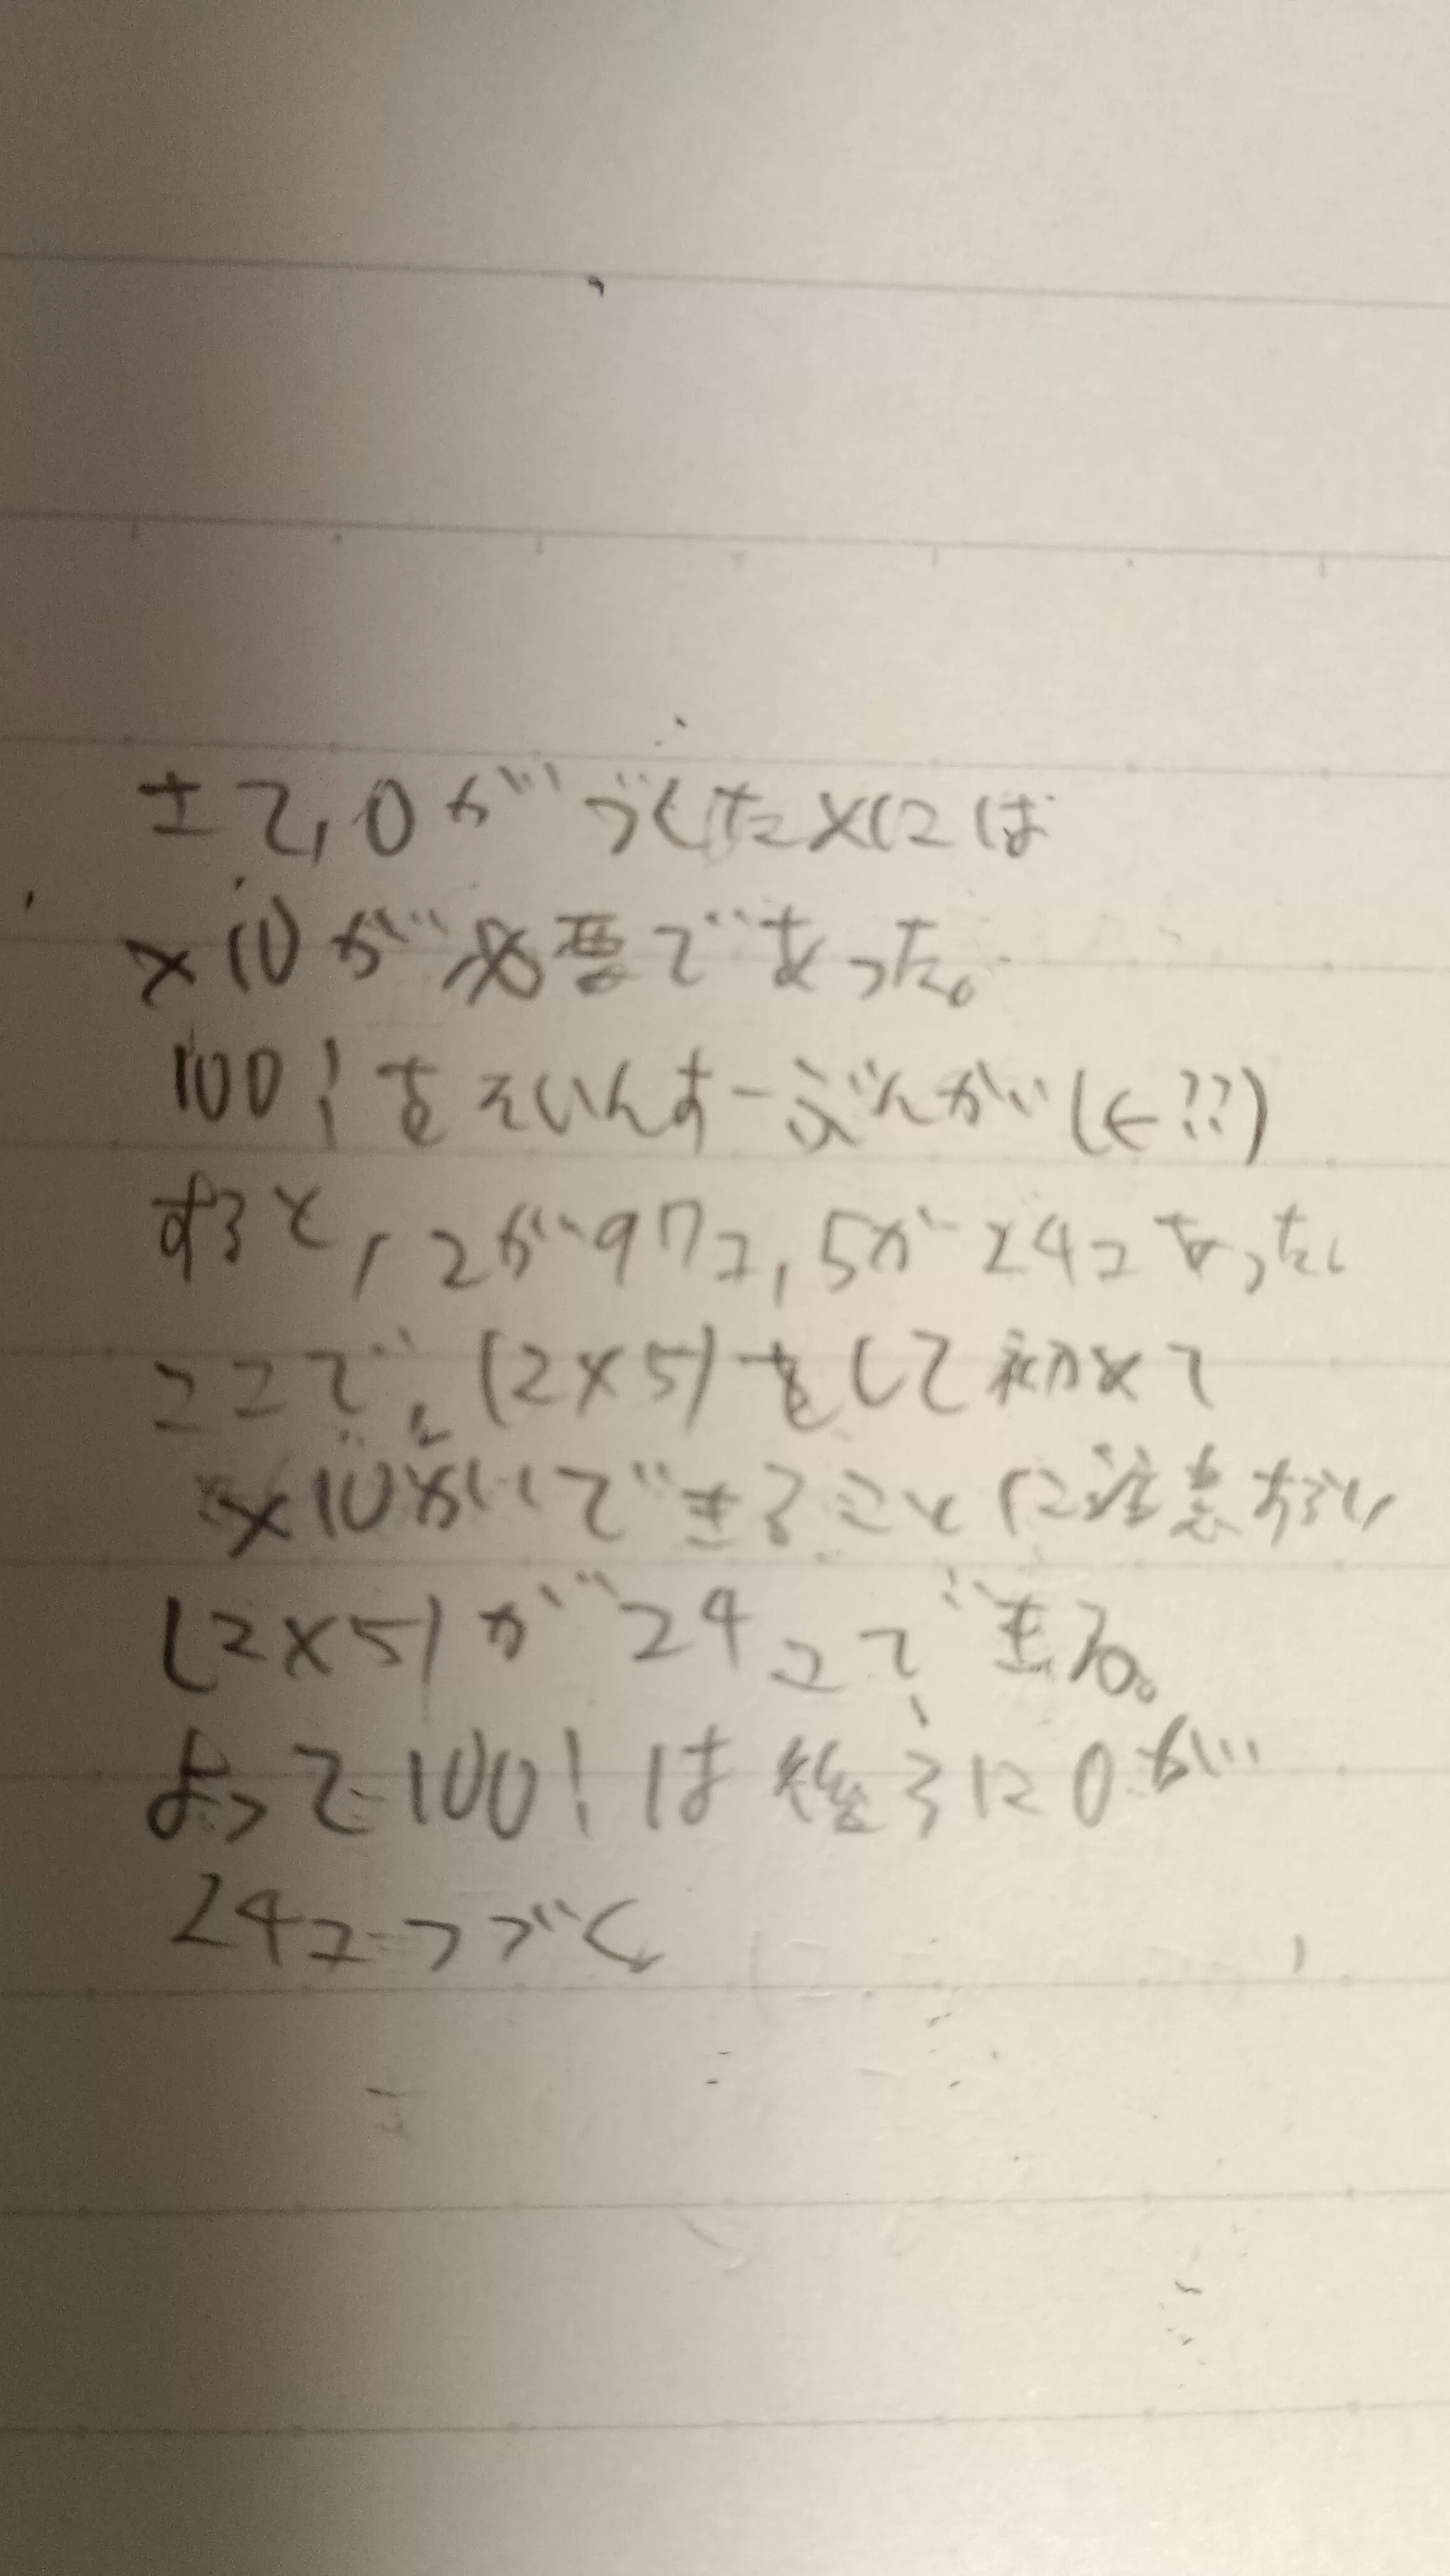 さて,0がづくためには
×10が必要であった。
100!をそいんすーぶんかい(←??)
すると,2が97コ,5が24コあった。
ここで,(2×5)をして初めて
×10ができることに注意すると,
(2×5)が24コできる。
よって100!は後ろに0が
24コつづく